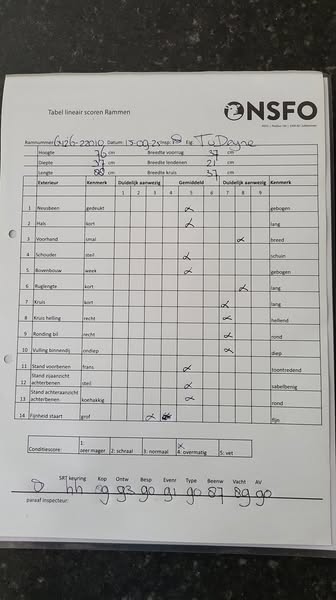 Tabel lineair scoren Rammen
NSFO
Rammnummer Datum: Insp: Eig:
Hoogte 76 cm Breedte voorrug 37 cm
Diepte 37 cm Breedte lendenen 21 cm
Lengte 88 cm Breedte kruis 37 cm
Exterieur Kenmerk Duidelijk aanwezig Gemiddeld Duidelijk aanwezig Kenmerk
1 2 3 4 5 6 7 8 9
1 Neusbeen gedeukt gebogen
2 Hals kort lang
3 Voorhand smal breed
4 Schouder steil schuin
5 Bovenbouw week gebogen
6 Ruglengte kort lang
7 Kruis kort lang
8 Kruis helling recht hellend
9 Ronding bil recht rond
10 Vulling binnendij ondiep diep
11 Stand voorbenen frans toontredend
12 Stand zijaanzicht achterbenen steil sabelbenig
13 Stand achteraanzicht achterbenen koehakkig rond
14 Fijnheid staart grof fijn
Conditiescore: 1: zeer mager 2: schraal 3: normaal 4: overmatig 5: vet
SRT keuring Kop Ontw Besp Evenr Type Beenw Vacht AV
93 90 91 90 87 89 90
paraaf inspecteur: